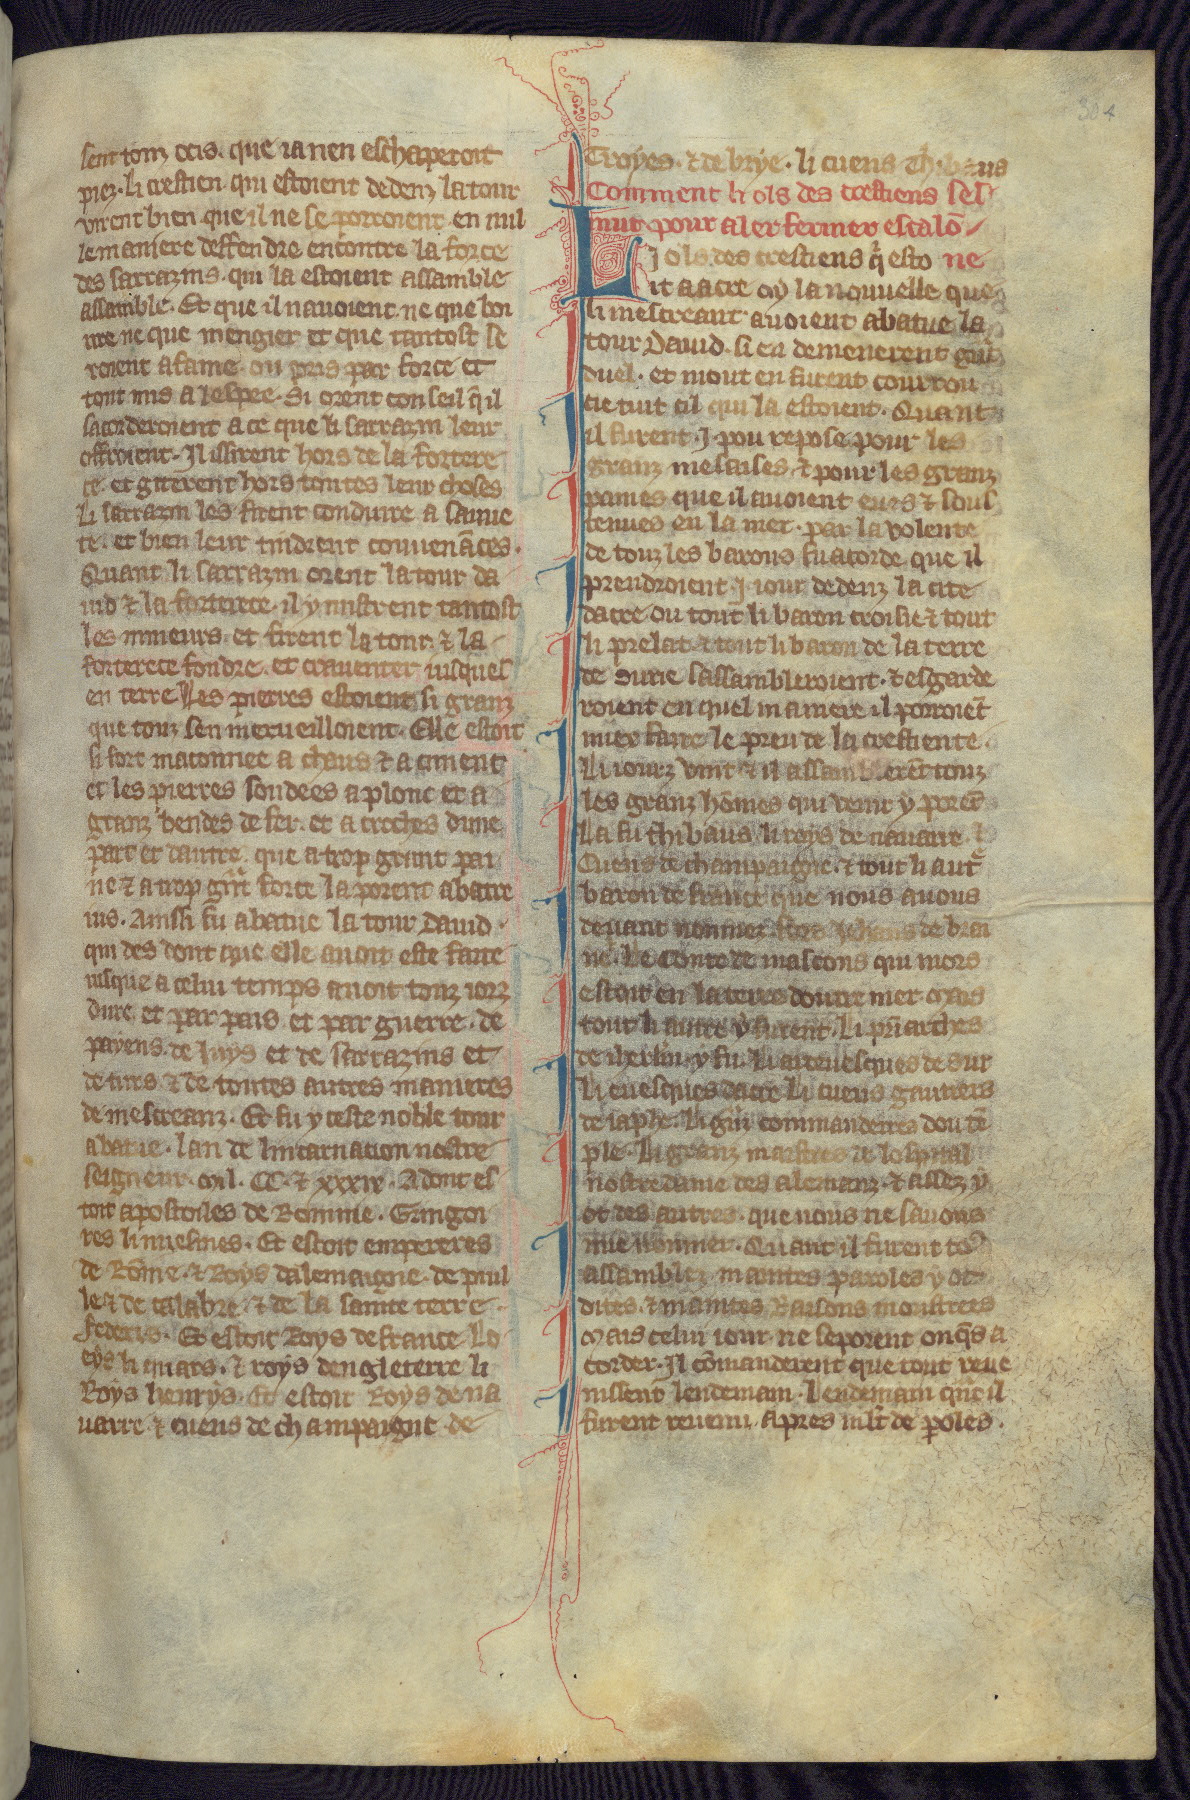 304
sent touz ocis. que ia nen eschaperoit
piez. li crestien qui estoient dedenz la tour
virent bien que il ne se porroient en nul
le maniere deffendre encontre la force
des sarrazins. qui la estoient assamble
assamble. Et que il nauoient ne que boi
ure ne que mengier et que tantost se
roient afame. ou pris par force et
tout mis a lespee. Si orent conseil q̃ il
sacorderoient a ce que li sarrazin leur
offroient. Il issirent hors de la fortere
ce. et giterent hors toutes leur choses
Li sarrazin les firent conduire a sauue
te. et bien leur tindrent conuenāces.
Quant li sarrazin orent la tour da
uid ⁊ la forterece. il y mistrent tantost
les mineurs. et firent la tour ⁊ la
forterece fondre. et crauenter iusques
en terre Les pierres estoient si granz
que touz sen merueilloient. Elle estoit
si fort maconnee a chaus ⁊ a ciment
et les pierres sondees a plonc et a
granz bendes de fer. et a croches dune
part et dautre. que a trop grant pai
ne ⁊ a trop gñt force la porent abatre
ius. Ainssi fu abatue la tour dauid.
qui des dont que elle auoit este faite
iusque a celui temps auoit touz iorz
dure. et par pais. et par guerre. de
payens. de iuys et de sarrazins et
de turs. ⁊ de toutes autres manieres
de mescreanz. Et fu y ceste noble tour
abatue. lan de lincarnation nostre
seigneur. Mil. CC. ⁊ xxxix. Adont es
toit apostoiles de Romme. Gringoi
res li nuefuies. Et estoit empereres
de Rōme. ⁊ Roys dalemaigne. de puil
le ⁊ de calabre. ⁊ de la sainte terre
federis. Et estoit Roys de france Lo
eys li quars. ⁊ roys dengleterre li
Roys henrys. Et estoit Roys de na
uarre ⁊ cuens de champaigne de
Troyes. ⁊ de brye. li cuens
Comment li ols des crestiens ses
mut pour aler fermer escalō
Li ols des crestiens q̃ esto ne
it a acre oy la nouuelle que
li mescreant auoient abatue la
tour Dauid. si en demenerent gñt
duel. et mout en furent courrou
cie tuit cil qui la estoient. Quant
il furent .I. pou repose pour les
granz mesaises. ⁊ pour les granz
paines que il auoient eues ⁊ sous
tenues en la mer. par la volente
de touz les barons fu acorde que il
prendroient .I. iour dedenz la cite
dacre ou tout li baron croisie ⁊ tout
li prelat ⁊ tout li baron de la terre
de surie sassambleroient. ⁊ esgarde
roient en quel maniere il porroiēt
miex faire le preu de la crestiente.
Li iourz vint ⁊ il assamblerēt touz
les granz hōmes qui venir y porēt
La fu thibaus li roys de nauarre. ⁊
Cuens de champaigne. ⁊ tout li aut̃
baron de france que nous auons
deuant nommez. fors Iehans de brai
ne. Le Conte de mascons qui mors
estoit en la terre doutre mer. Mais
tout li autre y furent. Li pñarches
de iherlm̃ y fu. Li arceuesques de sur
Li euesques dacre Li cuens gautiers
de iaphe. Li gñt commanderres dou tē
ple. Li granz maistres de lospital
nostre dame des alemanz. ⁊ assez y
ot des autres. que nous ne sauons
mie nommer. Quant il furent to9
assamblez maintes paroles y ot
dites. ⁊ maintes Raisons monstrees
Mais celui iour ne se porent onq̃s a
corder. Il cōmanderent que tout reue
nissent lendemain. Lendemain q̃nt il
furent reuenu. apres mlt̃ de p̄oles.